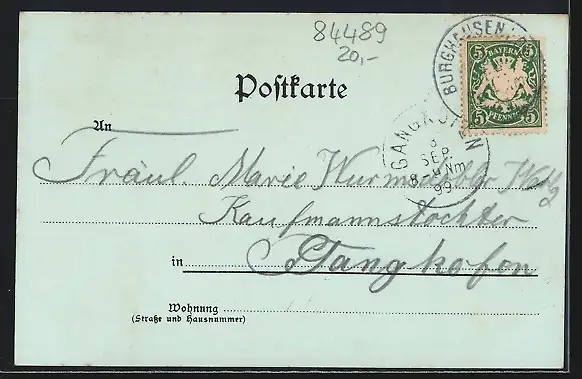 84489
20,-
BURGHAUSEN
5 BAYERN 5
5 PFENNIG 5
Postkarte
GANGKOFEN
8
SEP
8-9 Nm
99
An
Fräul. Marie
Kaufmannstochter
in Gangkofen
Wohnung
(Straße und Hausnummer)